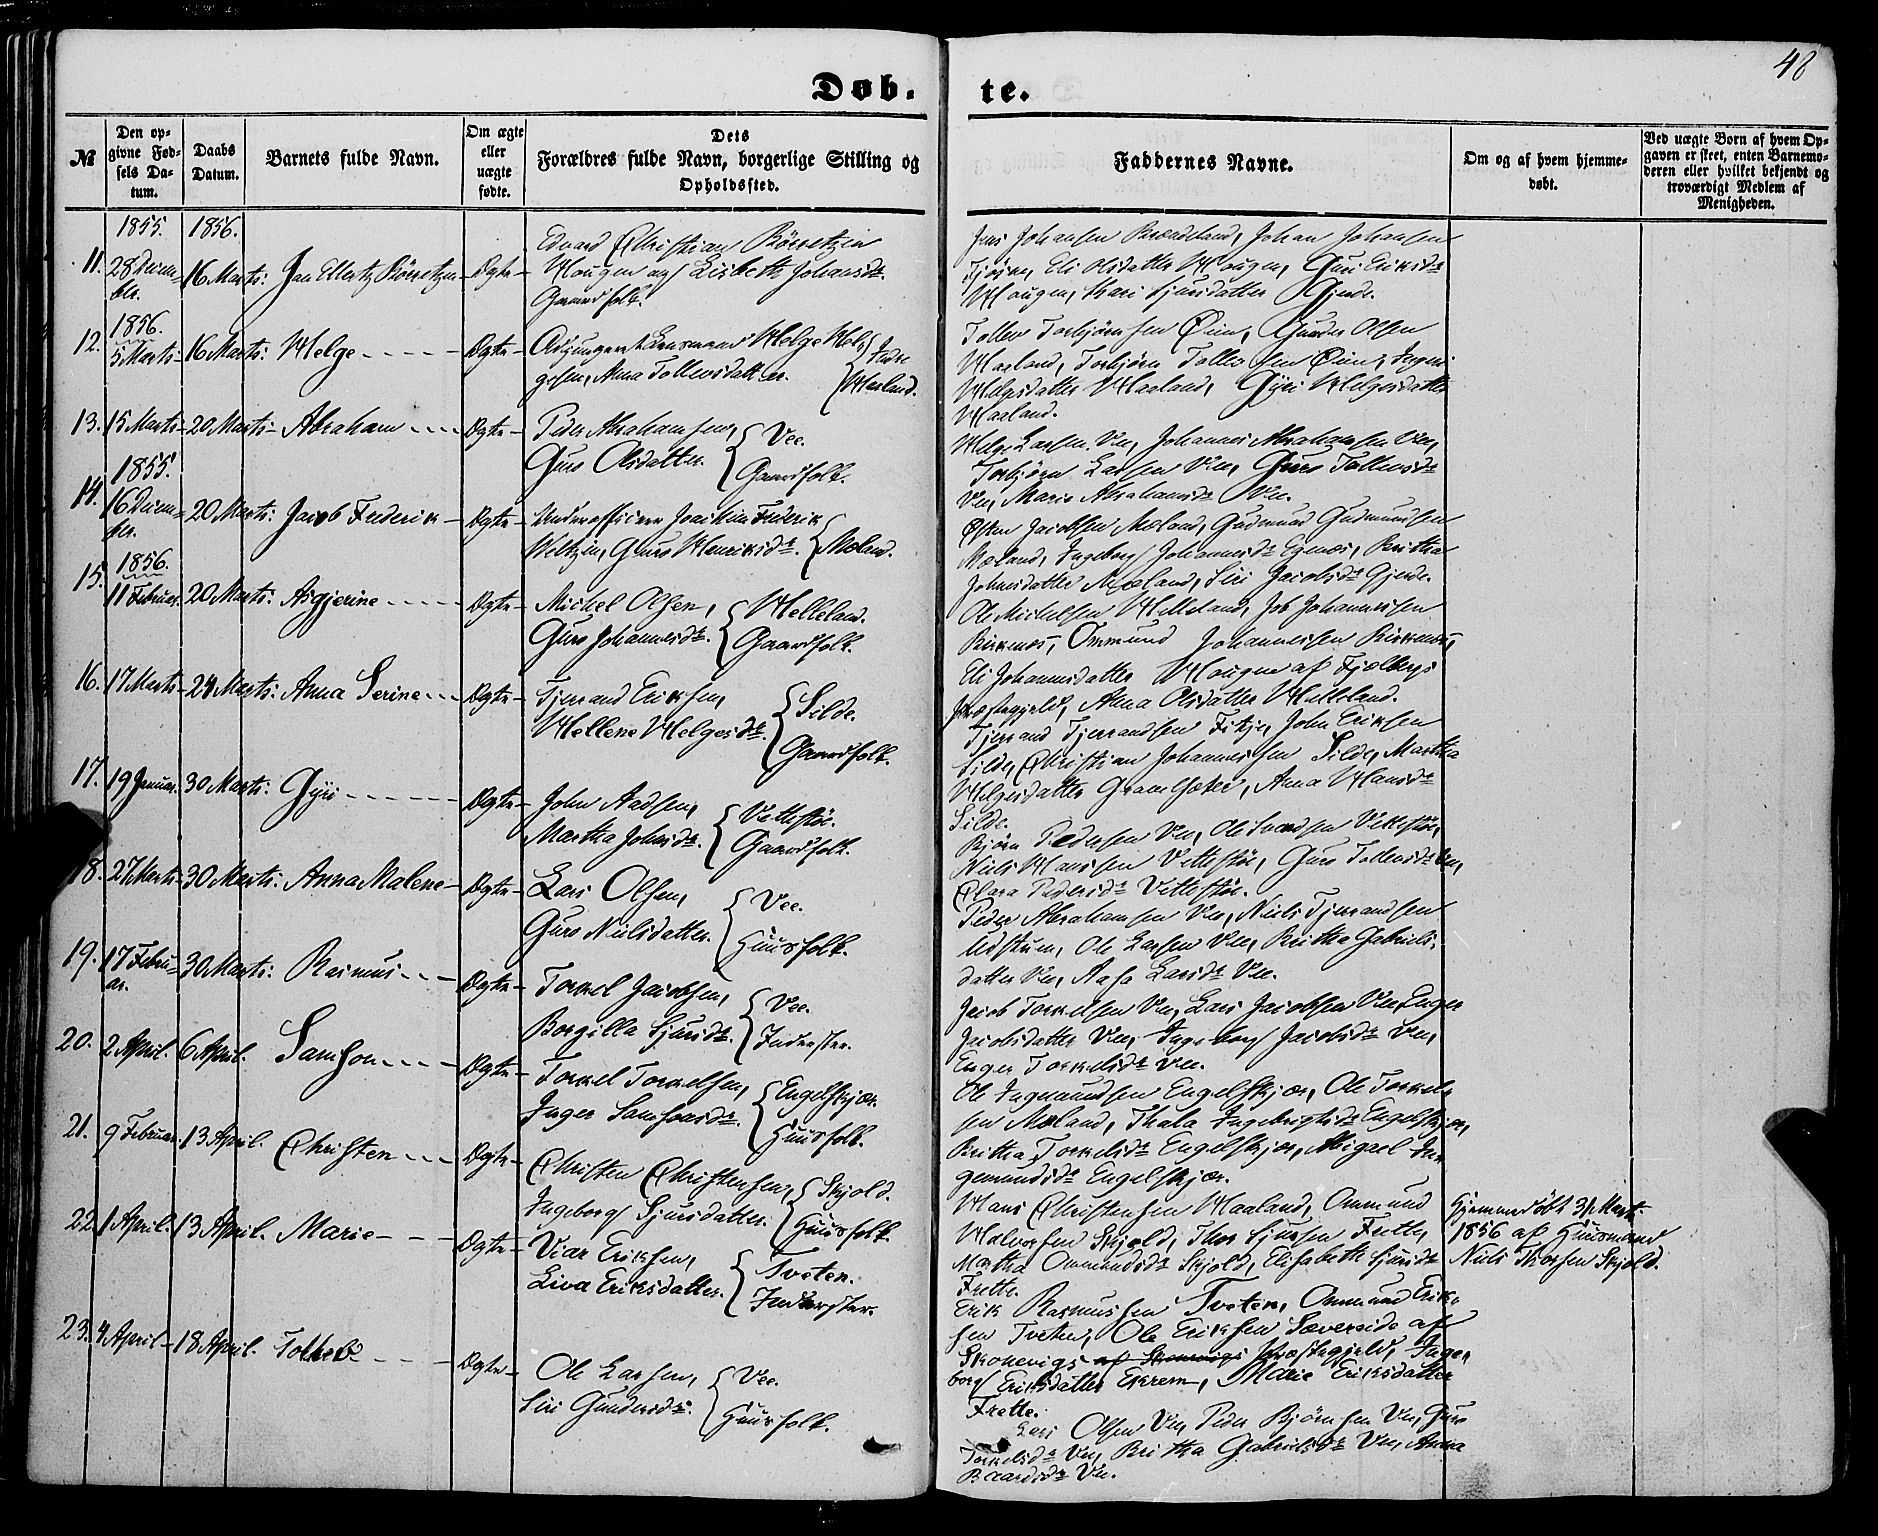 48
Døb-
te.
№
Den op-
givne Fød-
sels Da-
tum.
Daabs
Datum.
Barnets fulde Navn.
Om ægte
eller
uægte
fødte.
Dets
Forældres fulde Navn, borgerlige Stilling og
Opholdssted.
Faddernes Navne.
Om og af hvem hjemme-
døbt.
Ved uægte Born af hvem Op-
gaven er skeet, enten Barnemo-
deren eller hvilket bekjendt og
troværdigt Medlem af
Menigheden.
1855. 1856.
11. 28 Decem-
ber. 16 Marts: Jan Ellertz Börretzen Ægte-
Edvard Christian Börretzen
Hougen og Lisbeth Johansdr.
Gaardfolk.
Johansen Johan Johansen
Eli Olsdatter Hougen, Guri Eriksdr
Hougen, Kari Sjursdatter Gjerde.
1856.
12. 5 Marts- 16 Marts: Helge Ægte-
Helge Hel-
gesen, Anna Tollevsdatter. Indre
Haaland.
Tollev Torbjörnsen Øien, Gunder Olsen
Haaland, Torbjörn Tollevsen Øien,
Helgesdatter Haaland, Gyri Helgesdatter
Haaland.
13. 15 Marts- 20 Marts- Abraham Ægte-
Peder Abrahamsen,
Guro Olsdatter. Vee.
Gaardfolk.
Helge Larsen Vee, Johannes Abrahamsen Vee,
Torbjörn Larsen Vee, Guro Tollevsdr
Vee, Marie Abrahamsdr Vee.
1855.
14. 16 Decem-
ber. 20 Marts: Jacob Frederik Ægte-
Underofficeer Joachim Frederik
Weltzin, Guro Henriksdr. Mæland.
Østen Jacobsen Mæland, Gudmund Gudmundsen
Mæland, Ingeborg Johannesdr Egenæs, Britha
Johnsdatter Mæland, Siri Jacobsdr Gjerde.
1856.
15. 11 Februar. 20 Marts: Asgjerine Ægte-
Michel Olsen,
Guro Johannesdr. Helleland.
Gaardfolk.
Ole Michelsen Helleland, Job Johannessen
Birkenæs, Ommund Johannessen Birkenæs,
Eli Johannesdatter Hougen af Fjælbergs
Præstegjeld, Anna Olsdatter Helleland.
16. 17 Marts- 24 Marts: Anna Serine Ægte-
Tjerrand Eriksen,
Hellene Helgesdr. Silde.
Gaardfolk.
Tjerrand Tjerrandsen Fikje, John Eriksen
Silde, Christian Johannessen Silde, Martha
Helgesdatter, Anna Hansdr
Silde.
17. 19 Januar. 30 Marts: Gyri Ægte-
John Aadsen,
Martha Johnsdr. Vettestöe.
Gaardfolk.
Björn Pedersen Vee, Ole Vettestöe,
Niels Hansen Vettestöe, Guro Tollevsdr Vee,
Clara Pedersdr Vettestöe.
18. 27 Marts- 30 Marts: Anna Malene Ægte-
Lars Olsen,
Guro Nielsdatter. Vee.
Huusfolk.
Peder Abrahamsen Vee, Niels Tjerrandsen
Udstuen, Ole Larsen Vee, Britha Gabriels-
datter Vee, Aasa Larsdr Vee.
19. 17 Febru-
ar. 30 Marts: Rasmus Ægte-
Torkel Jacobsen,
Borgilla Sjursdr. Vee.
Inderster.
Jacob Torkelsen Vee, Lars Jacobsen Vee, Enger
Jacobsdatter Vee, Ingeborg Jacobsdr Vee,
Enger Torkelsdr Vee.
20. 2 April. 6 April. Samson Ægte-
Torkel Torkelsen,
Inger Samsonsdr. Engelskjær.
Huusfolk.
Ole Ingemundsen Engelskjær, Ole Torkel-
sen Mæland, Thala Ingebrigtsdr Engelskjær,
Britha Torkelsdr Engelskjær, Abigael In-
gemundsdr Engelskjær.
21. 9 Februar. 13 April. Christen Ægte-
Christen Christensen,
Ingeborg Sjursdatter. Skjold.
Huusfolk.
Hans Christensen Haaland, Ommund
Halvorsen Skjold, Thor Sjursen Frette,
Martha Ommundsdr Skjold, Elisabeth Sjursdr
Frette.
Hjemmedöbt 31 Marts
1856 af Huusmand
Niels Thorsen Skjold.
22. 1 April. 13 April. Marie Ægte-
Viar Eriksen,
Liva Eriksdatter. Tveten.
Inderster.
Erik Rasmussen Tveten, Ommund Erik-
sen Tveten, Ole Eriksen Sævereide af
Skonevigs Præstegjeld, Inge-
borg Eriksdatter Ekrem, Marie Eriksdatter
Frette.
23. 4 April- 18 April. Ægte-
Ole Larsen,
Siri Gundersdr. Vee.
Huusfolk.
Lars Olsen Vee, Peder Björnsen Vee, Guro
Torkelsdr Vee, Britha Gabrielsdr Vee, Anna
Baardsdr Vee.